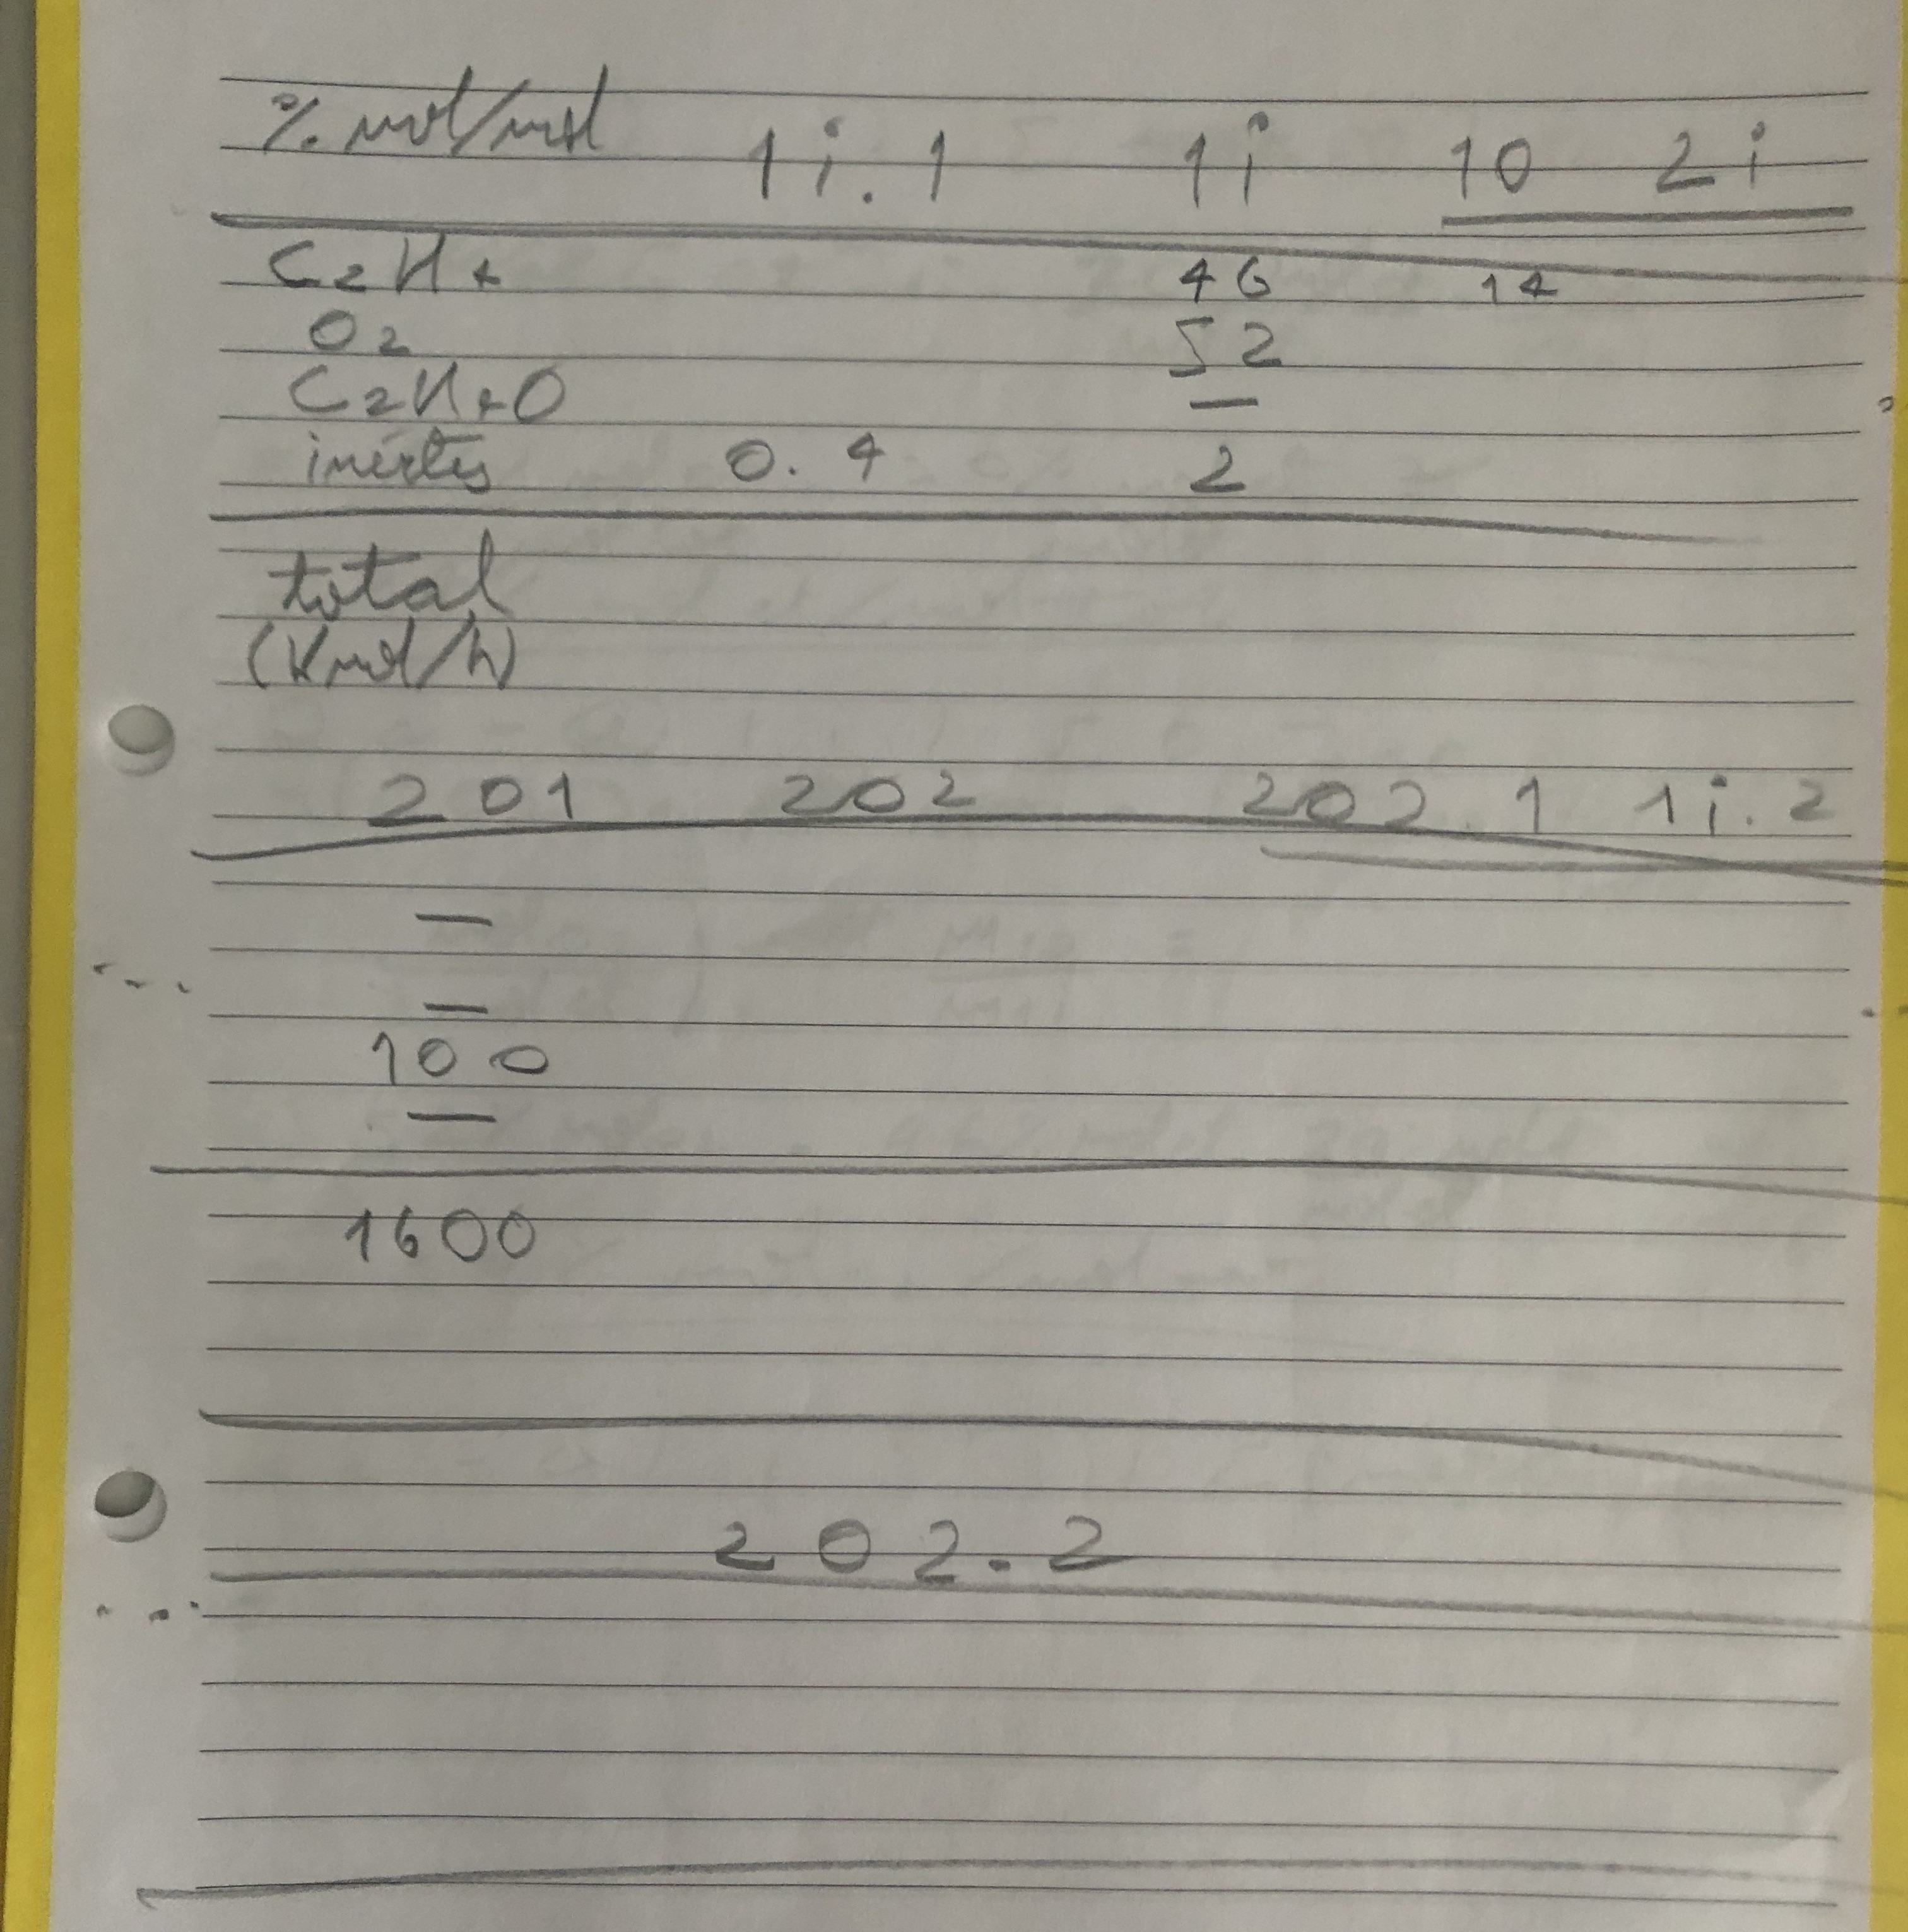 % mol/mol 1i.1 1i 10 2i
C2H4 46 14
O2 52
C2H4O —
inertes 0.4 2
total
(Kmol/h)
201 202 202.1 1i.2
—
—
100
—
1600
202.2